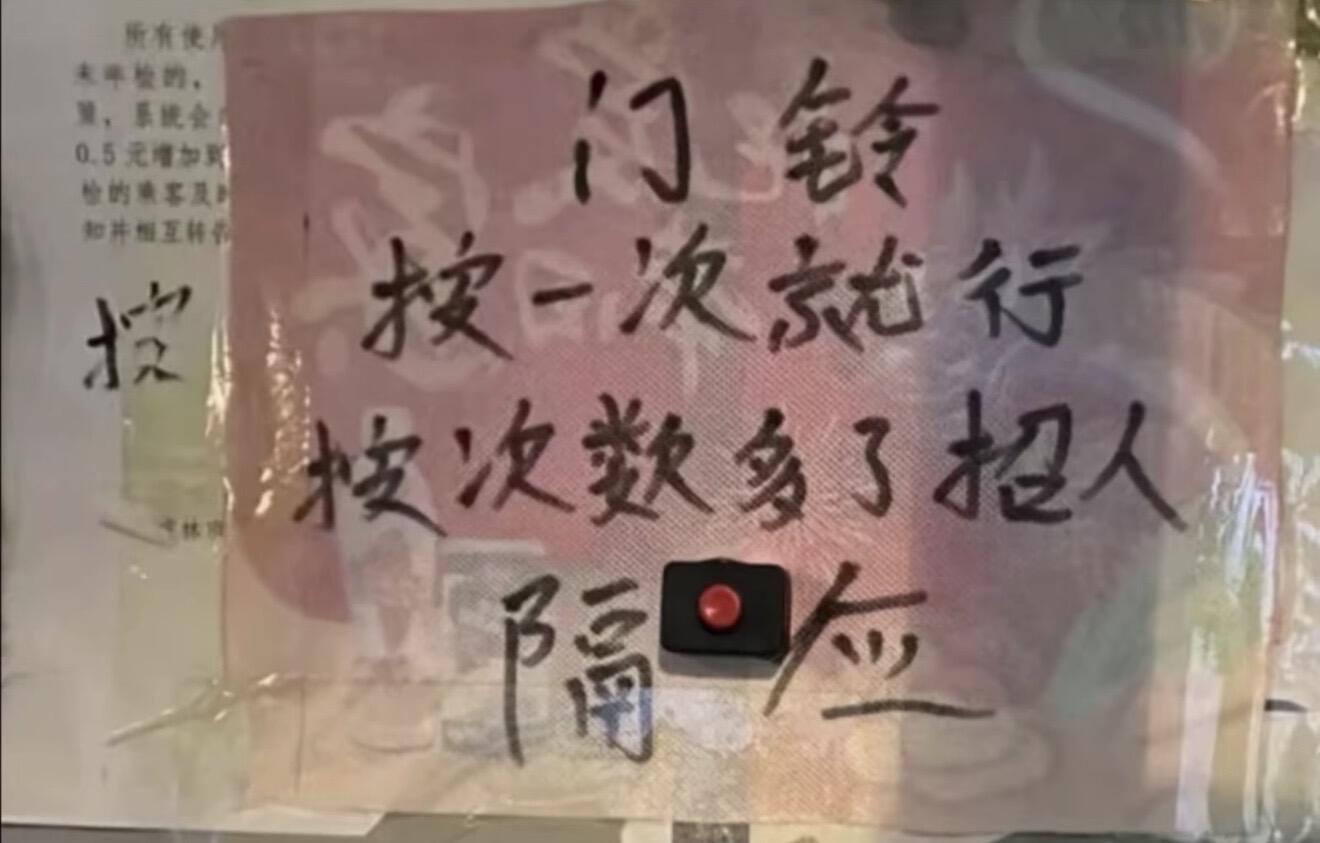 所有使
未年检的，
策，系统会
0.5元增加到
检的乘客及
知并相互转
按
门铃
按一次就行
按次数多了招人
隔应